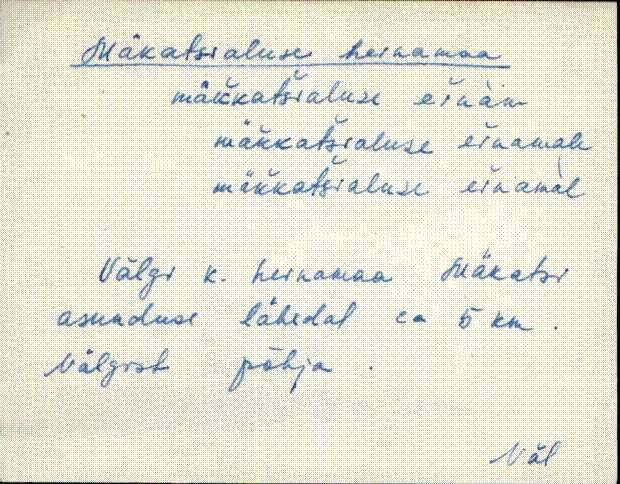 Mäkatsialuse heinamaa
mäk̆katšialuse eĭnàm
mäk̆katšialuse eĭnamale
mäk̆katšialuse eĭnamàl
Välgi k. heinamaa Mäkatsi
asunduse lähedal ca 5 km.
Välgist põhja.
Väl